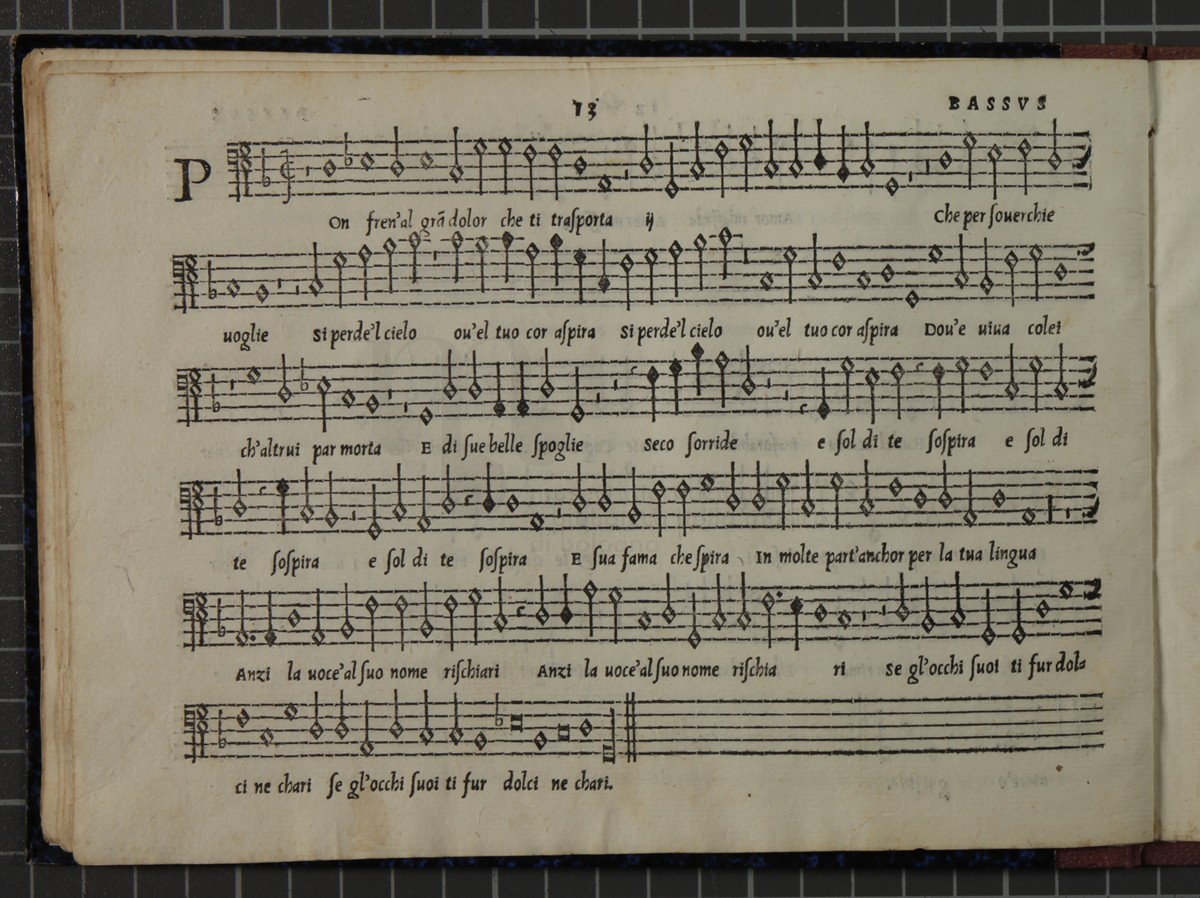 13
BASSVS
P
On fren'al grã dolor che ti trasporta ij Che per souerchie
uoglie Si perde'l cielo ou'el tuo cor aspira Si perde'l cielo ou'el tuo cor aspira Dou'e uiua colei
ch'altrui par morta E di sue belle spoglie Seco sorride e sol di te sospira e sol di
te sospira e sol di te sospira E sua fama che spira In molte part'anchor per la tua lingua
Anzi la uoce'al suo nome rischiari Anzi la uoce'al suo nome rischia ri Se gl'occhi suoi ti fur dol⸗
ci ne chari se gl'occhi suoi ti fur dolci ne chari.